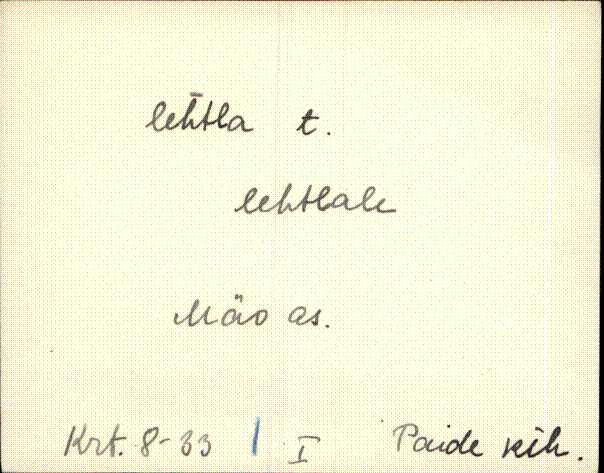 leh̄tla t.
lehtlale
Mäo as.
Krt. 8-33 I Paide kih.